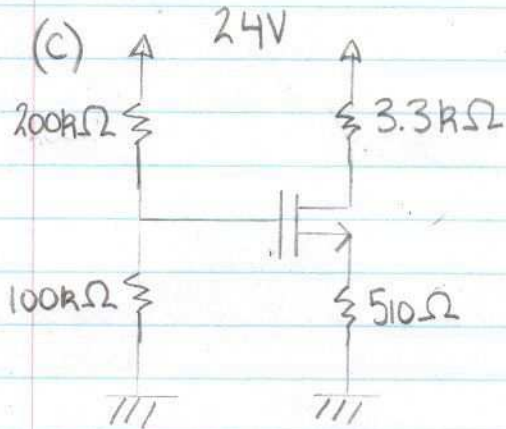 (C) 24V
200kΩ 3.3kΩ
100kΩ 510Ω